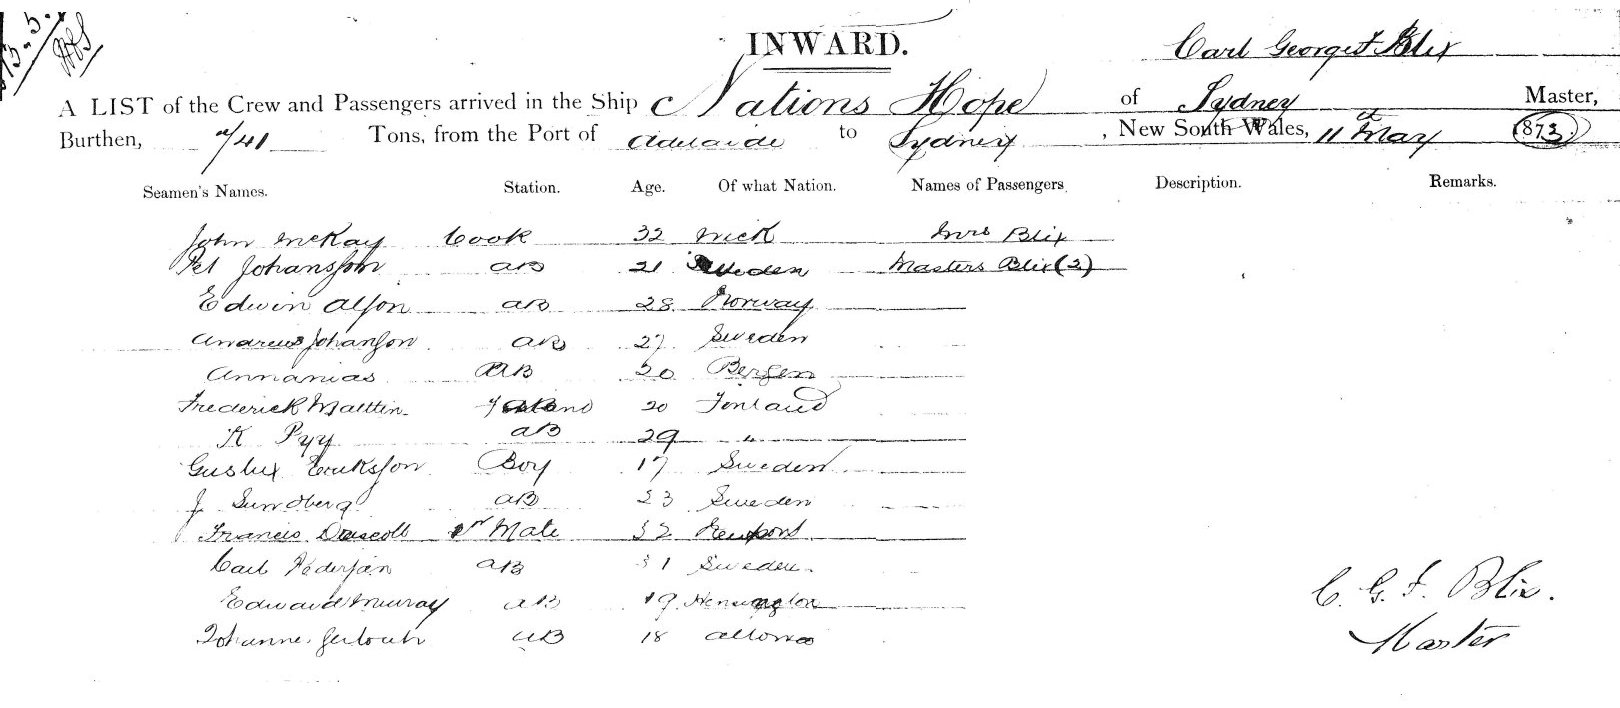 13.5.
INWARD.
Carl George F Blix
A LIST of the Crew and Passengers arrived in the Ship Nations Hope of Sydney Master,
Burthen, 741 Tons, from the Port of Adelaide to Sydney, New South Wales, 11th May 1873
Seamen's Names. Station. Age. Of what Nation. Names of Passengers Description. Remarks.
John McKay Cook 32 Wick Mrs Blix
Pet Johansson AB 21 Sweden Masters Blix (2)
Edwin Olson AB 28 Norway
Andrew Johanson AB 27 Sweden
Annanias AB 20 Bergen
Frederick Mattin 20 Finland
K Pyy AB 29 "
Eriksson Boy 17 Sweden
J. Sundberg AB 23 Sweden
Francis Driscoll 1st Mate 32 Newport
Carl Pedersan AB 31 Sweden
Edward Murray AB 19
Johanne AB 18 Altona
C. G. F. Blix.
Master